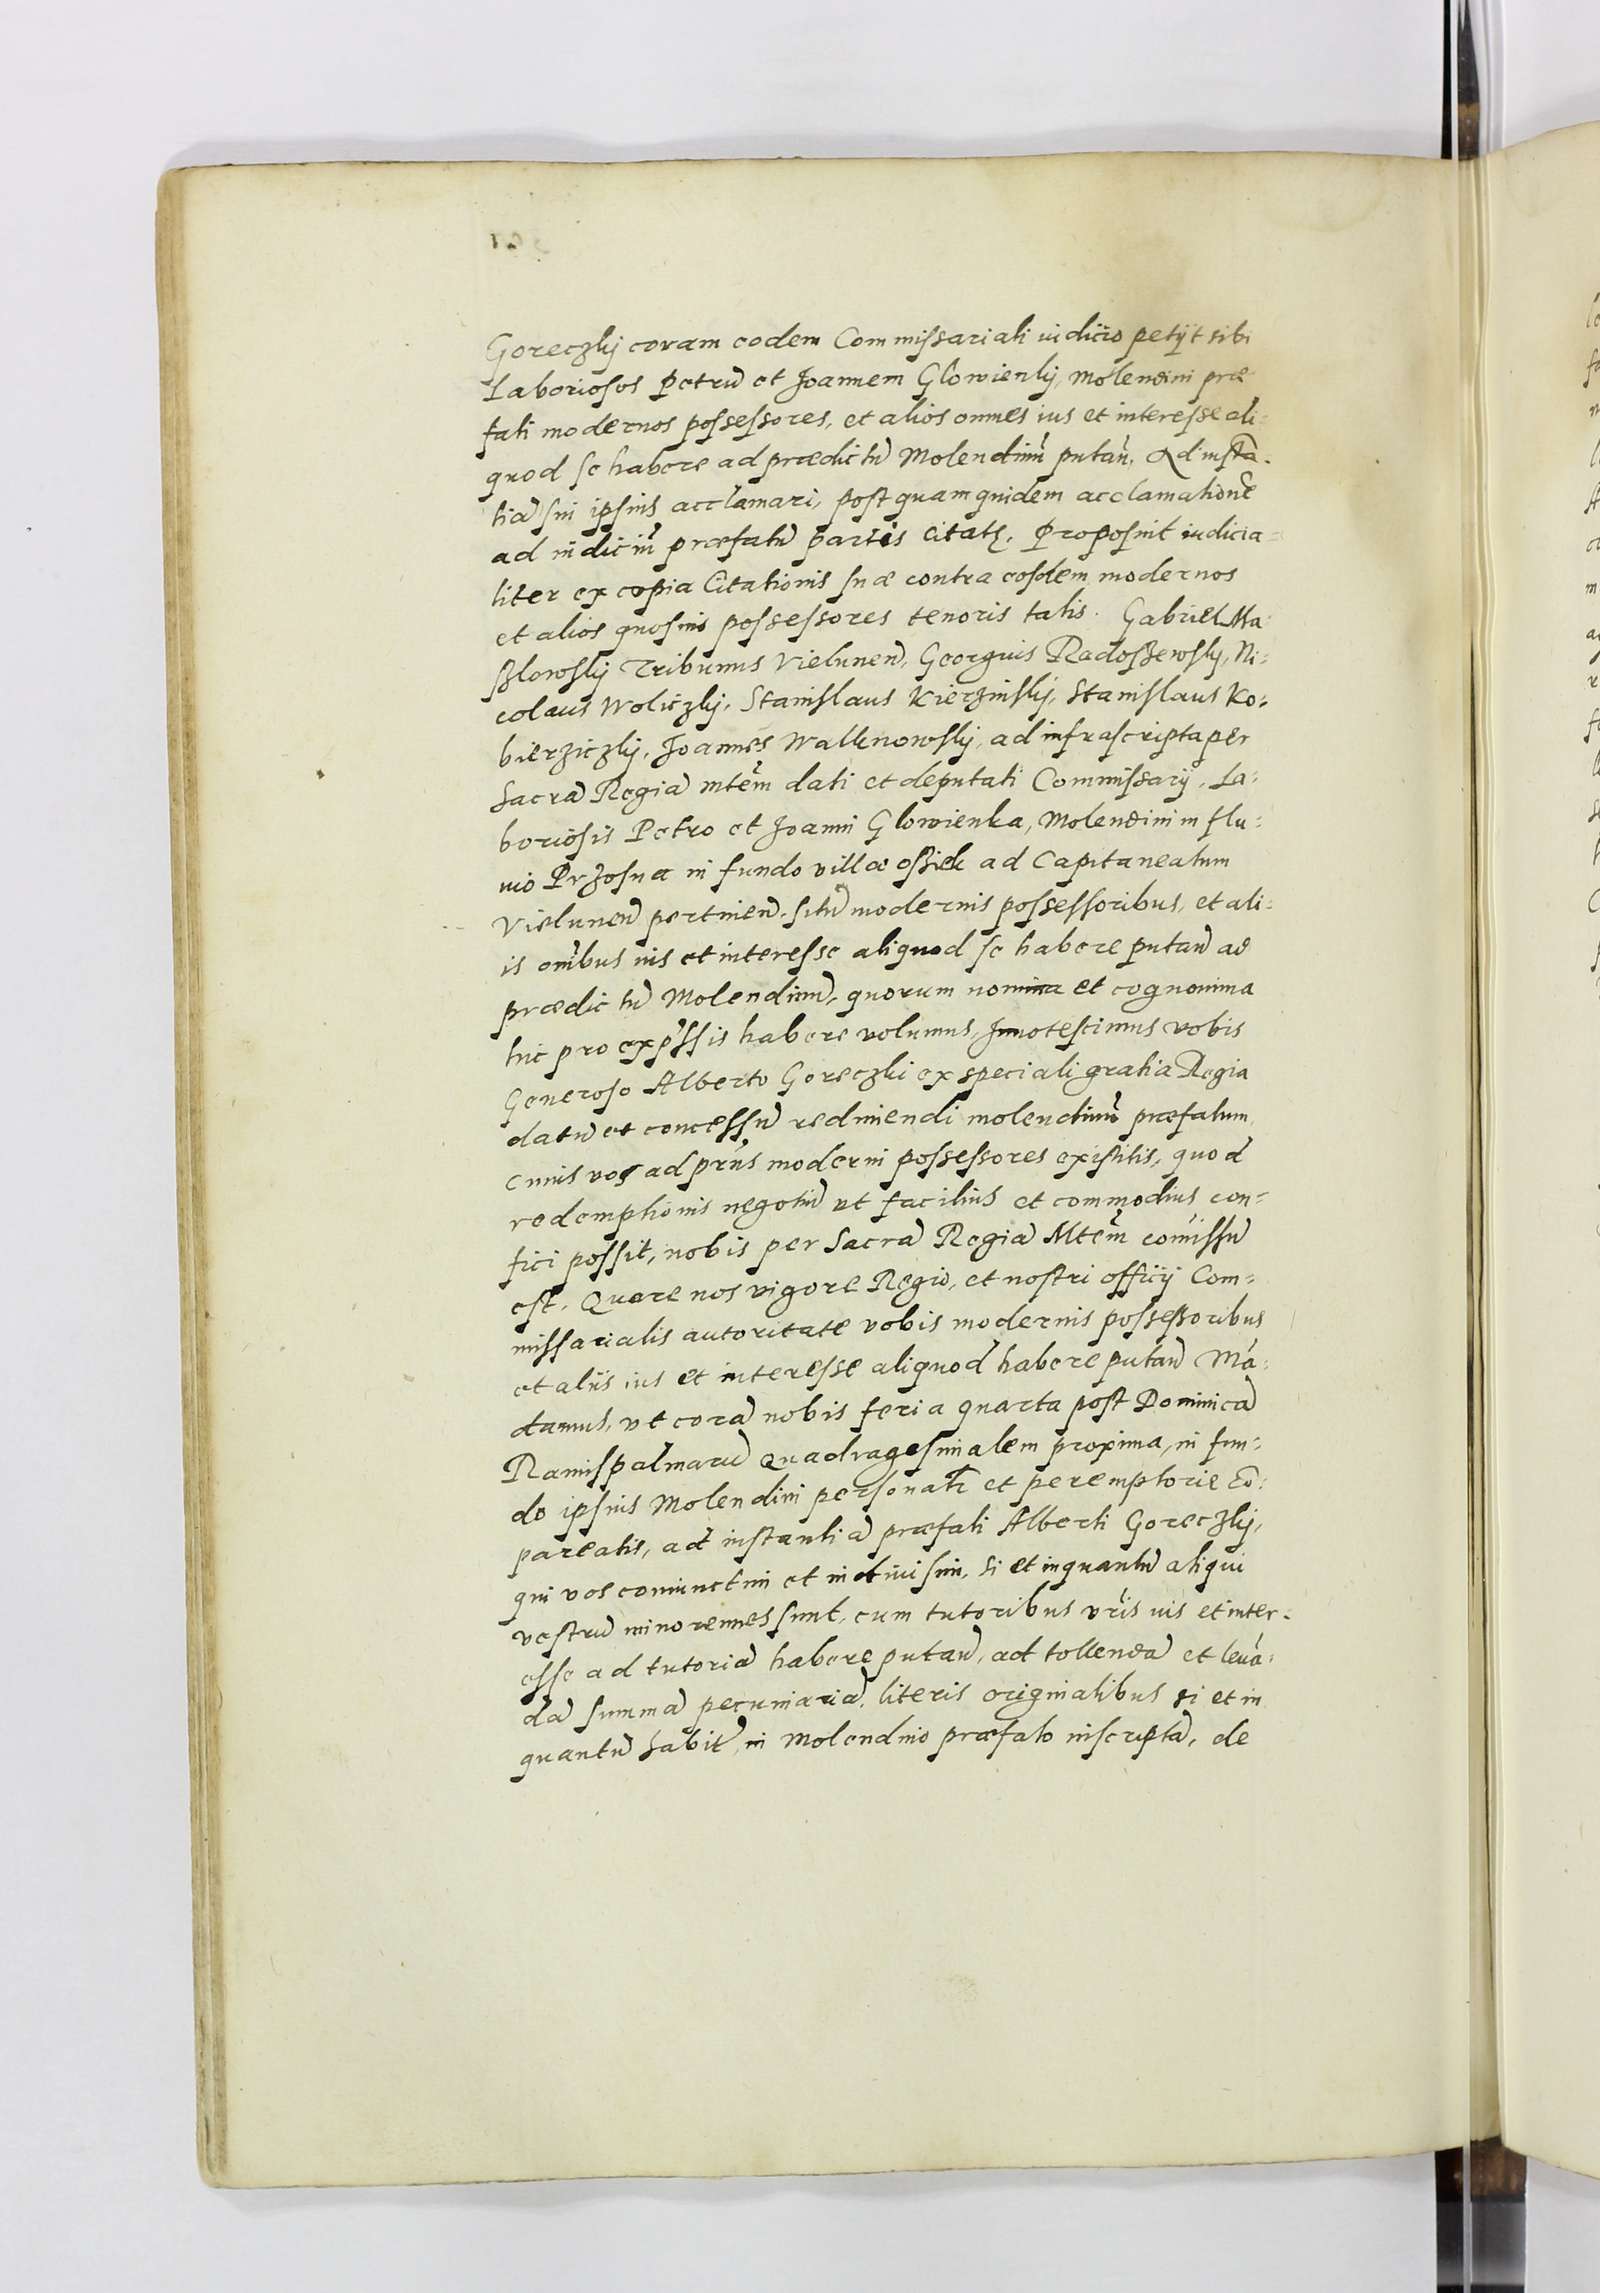 Goreczky coram eodem Commissariali iudicio petyt sibi
Laboriosos Petrū et Joannem Glowienky, Molendini præ
fati modernos possessores, et alios omnes ius et interesse ali-
quod se habere ad prædictū Molendinū putan̄. Ad instā-
tiā sui ipsius acclamari, post quam quidem acclamationē
ad iudiciū præfatū partis Citatę. Proposuit iudicia-
liter ex copia Citationis suæ contra eosdem modernos
et alios quosuis possessores tenoris talis. Gabriel Ma-
szlowsky Tribunus Vielunen̄, Georgius Radoszewsky, Ni-
colaus Woliczky, Stanislaus Kierzinsky, Stanislaus Ko-
bierziczky, Joannes Walknowsky, ad infrascripta per
Sacrā Regiā mtēm dati et deputati Commissarij. La-
boriosis Petro et Joanni Glowienka, Molendini in flu-
uio Przosna in fundo villæ Ossiek ad Capitaneatum
Vielunen̄ pertinen̄. situ modernis possessoribus, et ali-
is om̄ibus ius et interesse aliquod se habere putan̄ ad
prædictū Molendinū, quorum nomina et cognomina
hic pro exp̄ssis habere volumus, Innotescimus vobis
Generoso Alberto Goreczki ex speciali gratia Regia
datū et concessū redimendi molendinū præfatum,
cuius vos ad pr̄ns moderni possessores existitis, quod
redemptionis negotiū ut facilius et commodius con-
fici possit, nobis per Sacrā Regiā Mtēm com̄issū
est. Quare nos vigore Regio, et nostri officij Com-
missarialis autoritate vobis modernis possessoribus
et alijs ius et interesse aliquod habere putan̄ Mā-
damus, ut corā nobis feria quarta post Dominicā
Ramispalmarū Quadragesimalem proxima, in fun-
do ipsius Molendini personalr̄ et peremptorie cō-
pareatis, ad instantiā præfati Alberti Goreczky,
qui vos coniunctim et indiuisim, si et inquantū aliqui
vestrū minorennes sunt, cum tutoribus vr̄is ius et inter-
esse ad tutoriā habere putan̄, ad tollendā et leuā-
dā summā pecuniariā, literis originalibus si et in
quantū habit̄ in Molendino præfato inscriptā, de